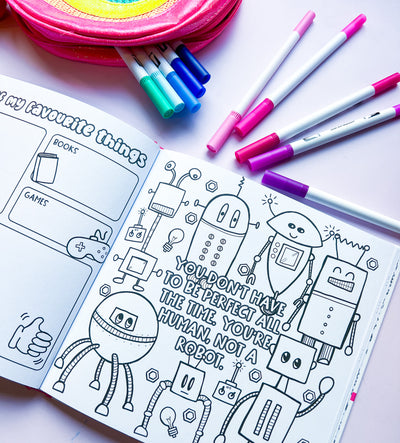 MY favourite things
BOOKS
GAMES
YOU DON'T HAVE
TO BE PERFECT ALL
THE TIME. YOU'RE
HUMAN, NOT A
ROBOT.